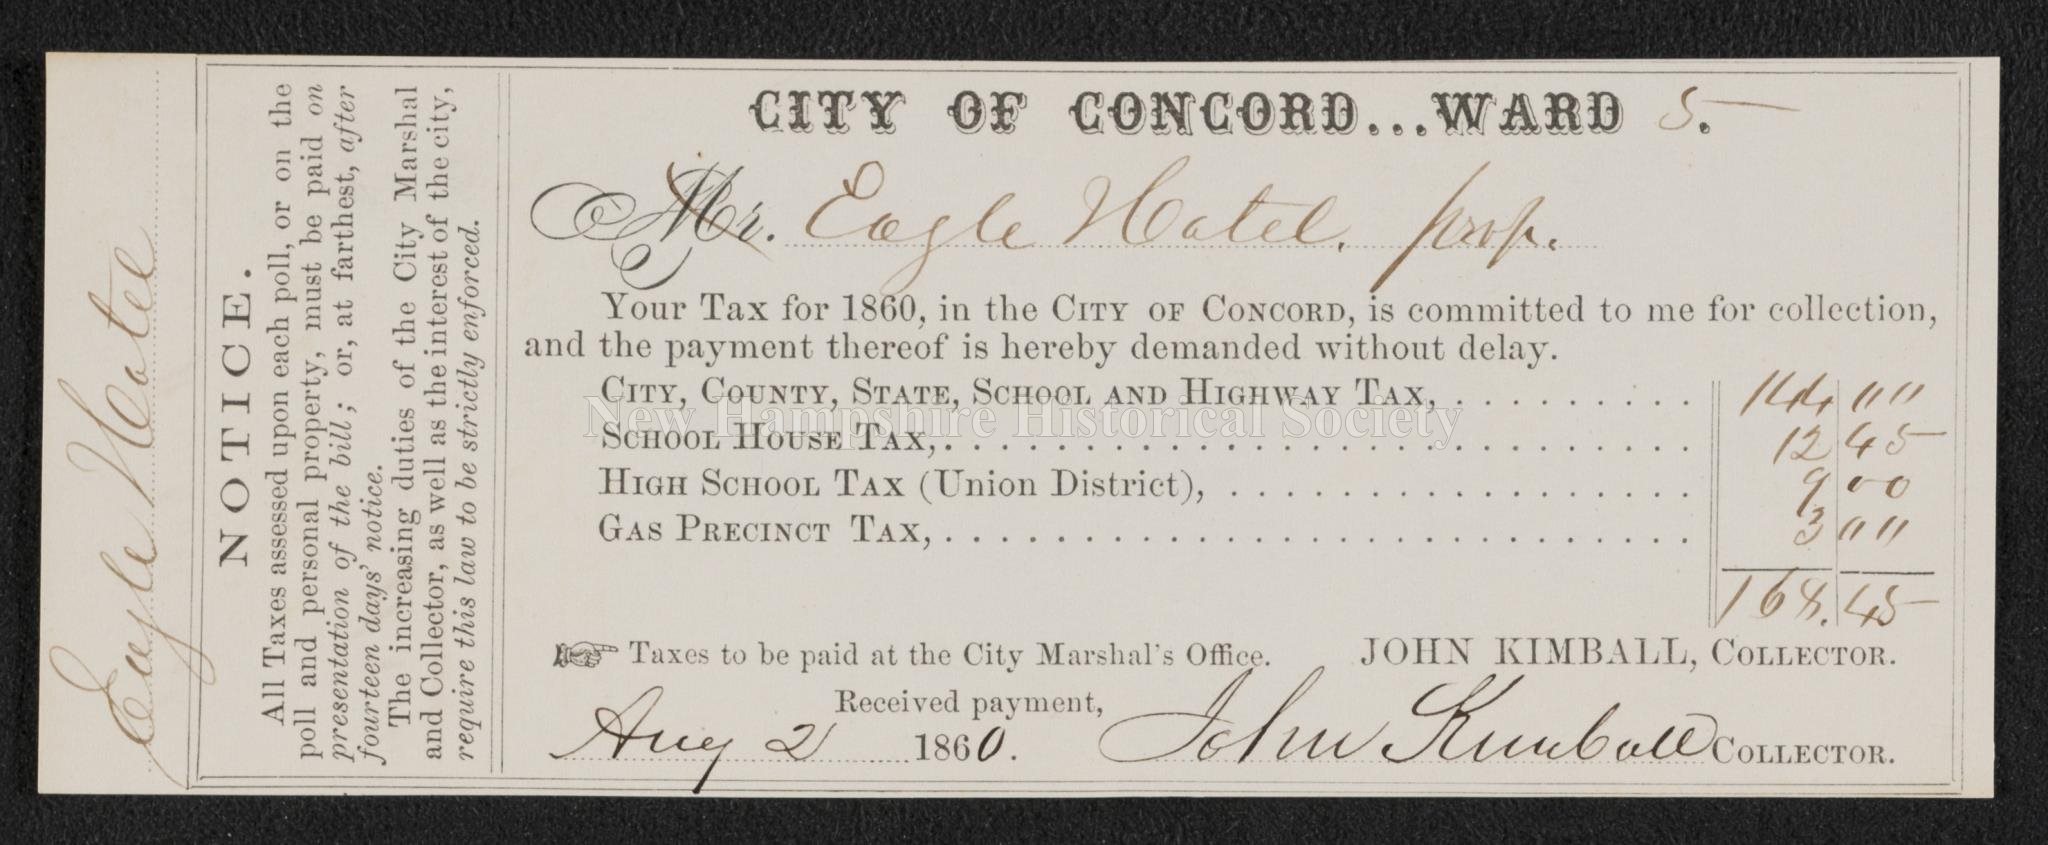 Eagle Hotel
NOTICE.
All Taxes assessed upon each poll, or on the
poll and personal property, must be paid on
presentation of the bill; or, at farthest, after
fourteen days' notice.
The increasing duties of the City Marshal
and Collector, as well as the interest of the city,
require this law to be strictly enforced.
CITY OF CONCORD...WARD 5.
Mr. Eagle Hotel. prop.
Your Tax for 1860, in the CITY OF CONCORD, is committed to me for collection,
and the payment thereof is hereby demanded without delay.
CITY, COUNTY, STATE, SCHOOL AND HIGHWAY TAX, . . . . . . . . . . 144 "
New Hampshire Historical Society
SCHOOL HOUSE TAX, . . . . . . . . . . 12 45
HIGH SCHOOL TAX (Union District), . . . . . . . . . . 9 00
GAS PRECINCT TAX, . . . . . . . . . . 3 "
168.45
☞ Taxes to be paid at the City Marshal's Office. JOHN KIMBALL, COLLECTOR.
Received payment,
Aug 2 1860. John Kimball COLLECTOR.